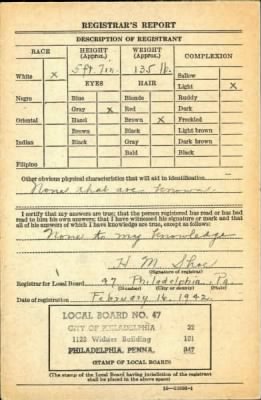 REGISTRAR'S REPORT
DESCRIPTION OF REGISTRANT
RACE HEIGHT (Approx.) WEIGHT (Approx.) COMPLEXION
5 ft. 7 in. 135 lb.
Sallow
White X EYES HAIR Light X
Negro Blue Blonde Ruddy
Gray X Red Dark
Oriental Hazel Brown X Freckled
Brown Black Light brown
Indian Black Gray Dark brown
Bald Black
Filipino
Other obvious physical characteristics that will aid in identification
None that are known
I certify that my answers are true; that the person registered has read or has had
read to him his own answers; that I have witnessed his signature or mark and that
all of his answers of which I have knowledge are true, except as follows:
None to my knowledge
H M
(Signature of registrar)
Registrar for Local Board 47 Philadelphia Pa
(Number) (City or county) (State)
Date of registration February 16, 1942
LOCAL BOARD NO. 47
CITY OF PHILADELPHIA 22
1122 Widener Building 101
PHILADELPHIA, PENNA. 047
(STAMP OF LOCAL BOARD)
(The stamp of the Local Board having jurisdiction of the registrant
shall be placed in the above space)